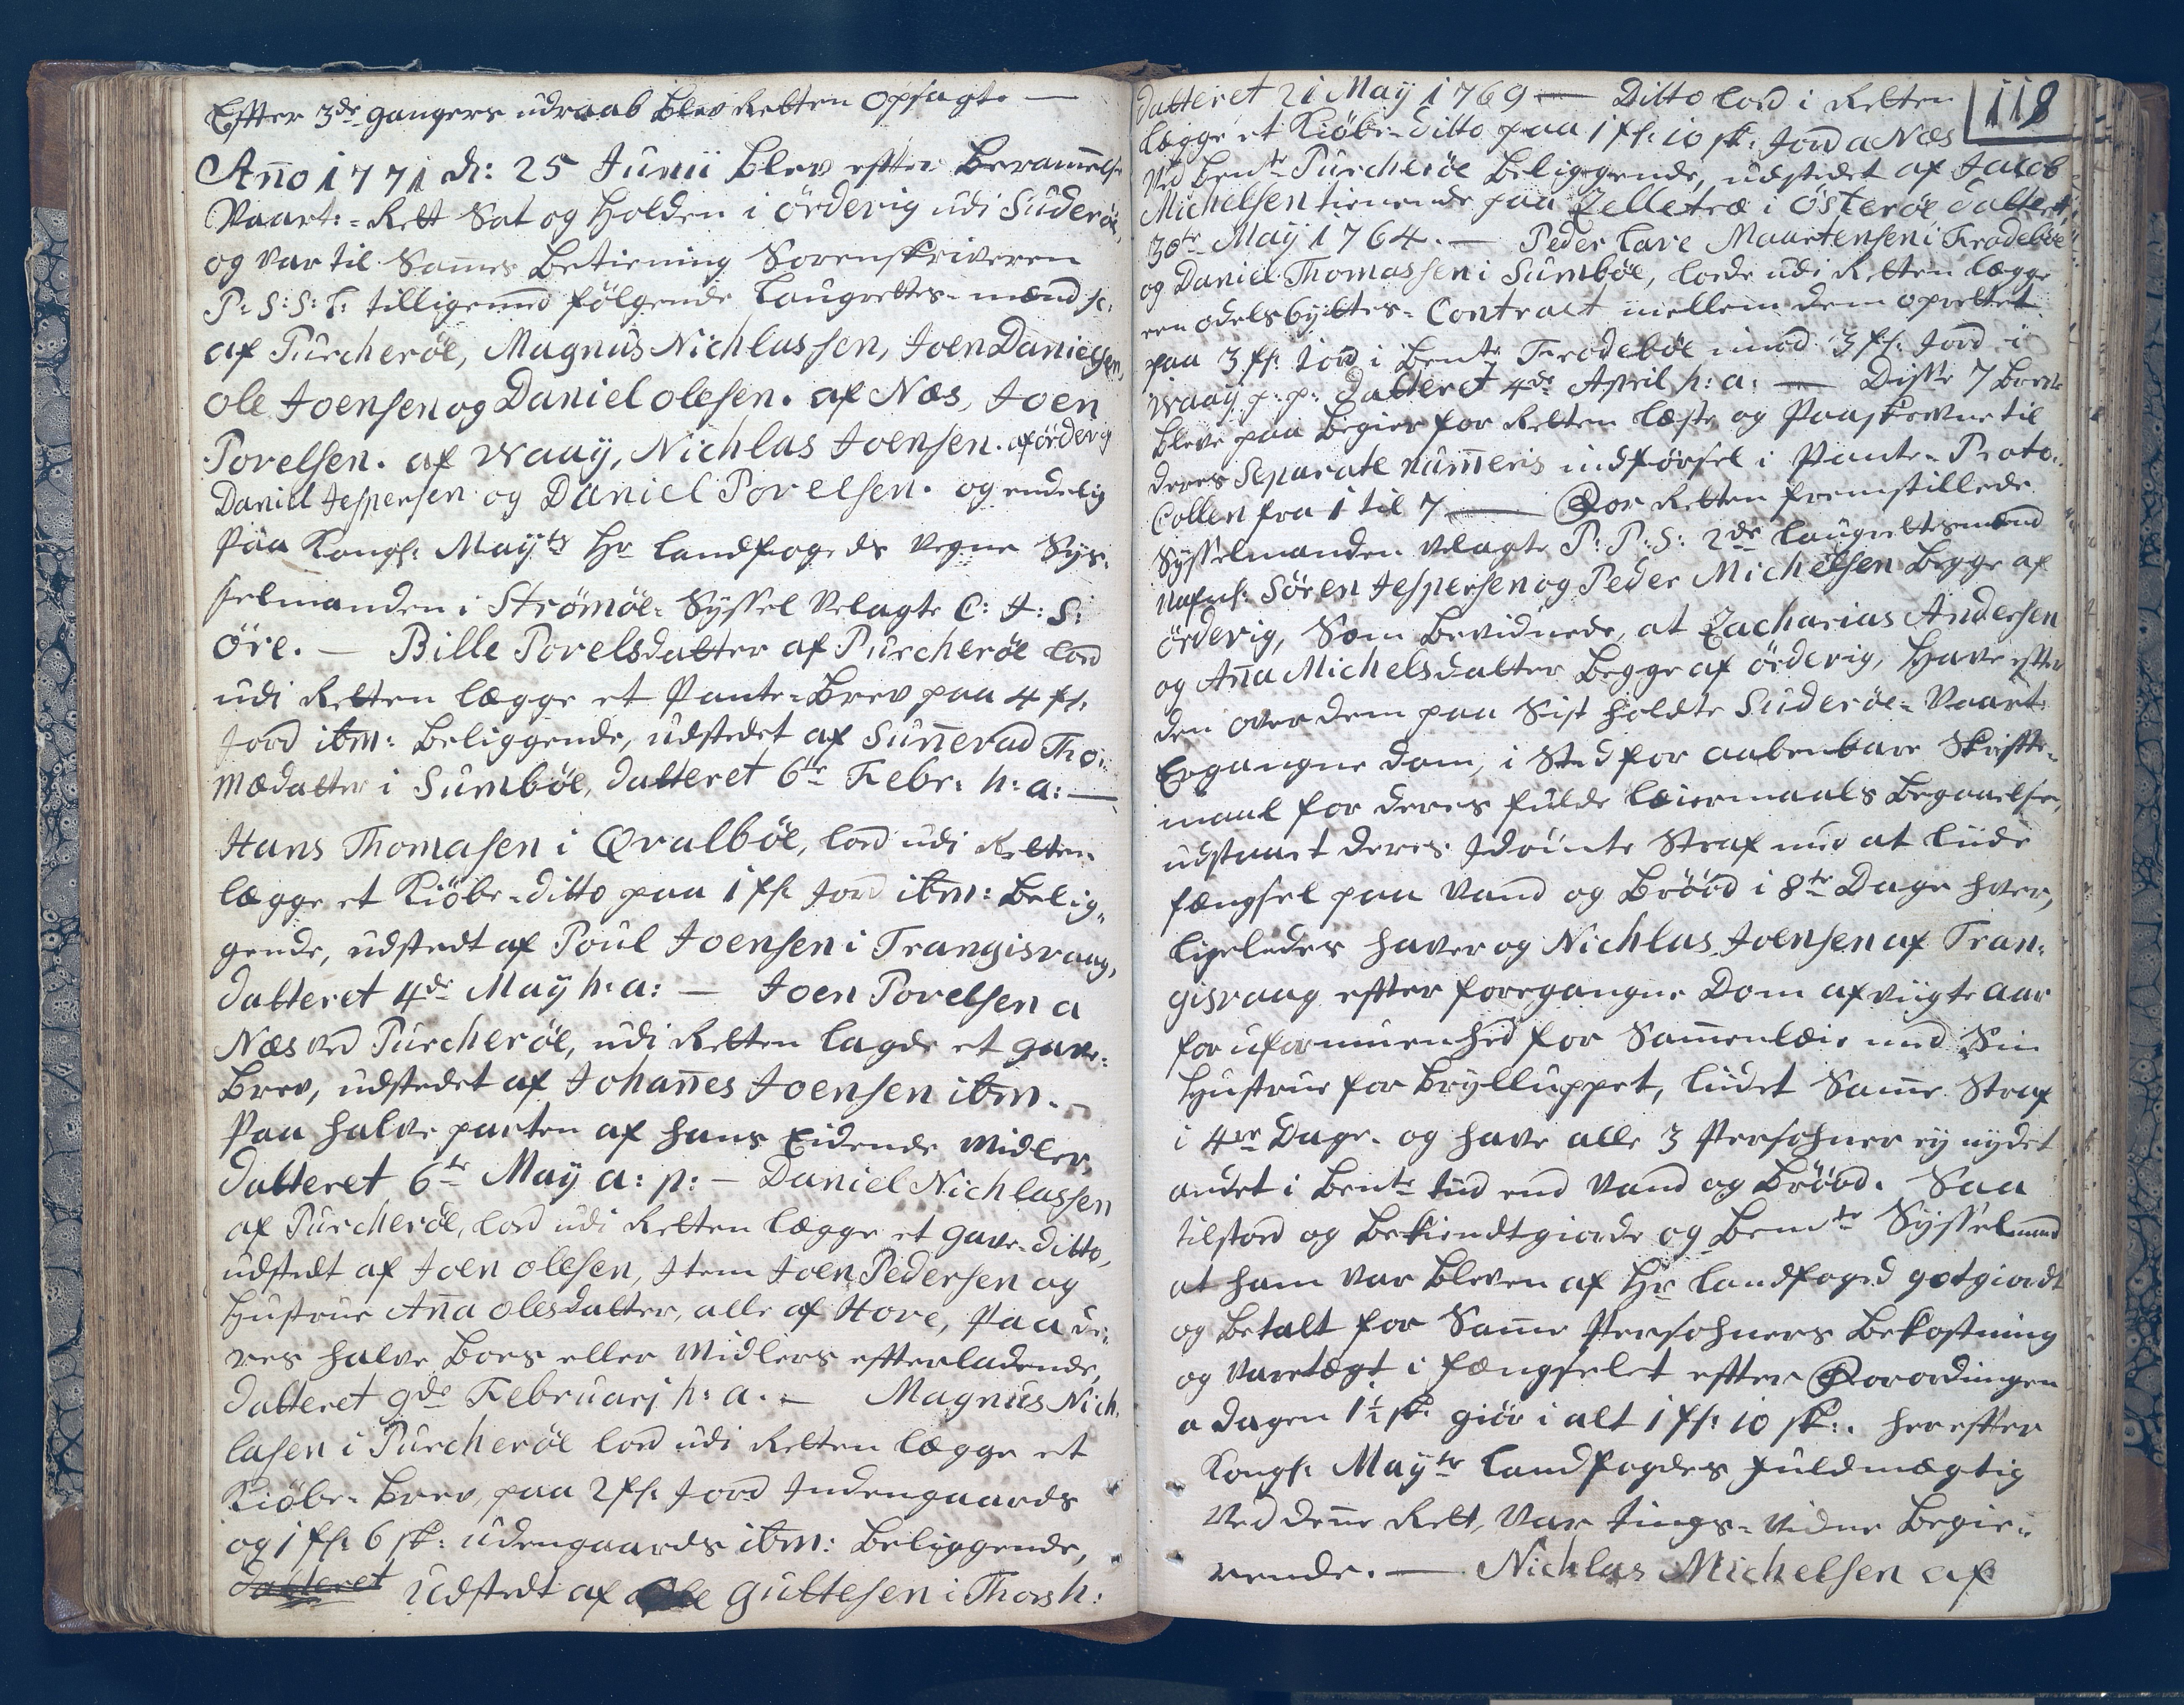 Efter 3de gangers udraab blev Retten Opsagt. —
Año 1771 d: 25 Junii blev efter Beram̃else
Vaart:=Rett Sat og Holden i Örderig udi Suderöe,
og var til Sam̃es Betiening Sorenskriveren
P: S: S: L: tilligemed følgende Laugrettes-mænd sc:
af Purcheröe, Magnus Nichlassen, Joen Danielsen,
Ole Joensen og Daniel Olesen. af Næs, Joen
Povelsen. af Waaÿ, Nichlas Joensen. af örderig
Daniel Jespersen og Daniel Povelsen. og endelig
Paa Kongl: Maÿts Hr Landfogeds vegne Sÿs-
selmanden i Strömöe-Sÿssel Velagte C: J: S:
Öre. — Bille Povelsdatter af Purcheröe lod
udi Retten lægge et Pante-Brev paa 4 fs:
Jord ibm: Beliggende, udstedet af Suñevad Tho-
mædatter i Sumböe, datteret 6te Febr: h: a: —
Hans Thomasen i Qvalböe, lod udi Retten
lægge et Kiöbe-ditto paa 1 fs: Jord ibm: Belig-
gende, udstedt af Poul Joensen i Trangisvaag,
datteret 4de Maÿ h: a: — Joen Povelsen a
Næs ved Purcheröe, udi Retten lagde et gave-
Brev, udstedet af Johañes Joensen ibm. -
Paa halve parten af hans Eidende Midler,
datteret 6te Maÿ a: p: — Daniel Nichlassen
af Purcheröe, lod udi Retten lægge et gave-ditto,
udstedt af Joen Olesen, Item Joen Pedersen og
Hustrue Aña Olesdatter, alle af Hove, Paa de-
res halve Boes eller Midlers efterladende,
datteret 9de Februarj h: a. — Magnus Nich-
lasen i Purcheröe lod udi Retten lægge et
Kiöbe-Brev, paa 2 fs: Jord Indengaards
og 1 fs: 6 sk: udengaards ibm: Beliggende,
datteret Udstedt af Ole Guttesen i Thorsh:
118
datteret 21 Maÿ 1769 — Ditto lod i Retten
lægge et Kiöbe-ditto paa 1 fs: 10 sk: Jord a Næs
ved Bente Purcheröe Beliggende, udstedet af Jacob
Michelsen tienende paa Zelletræ i Österöe datteret
30te Maÿ 1764. — Peder Lave Maartensen i Frodeböe
og Daniel Thomassen i Sumböe, lode udi Retten lægge
een Odelsbyttes-Contract mellem dem oprettet
paa 3 fs: Jord i Bente Frodeböe imod 3 fs: Jord i
Waaÿ p. p: datteret 4de April h: a: — Disse 7 Breve
bleve paa Begier for Retten læste og Paaskrevne til
deres Separate num̃eris indførsel i Pante-Proto-
Collen fra 1 til 7 — For Retten fremstillede
Sÿsselmanden Velagte P: P: S: 2de Laugrettesmænd
Nafnl: Sören Jespersen og Peder Michelsen Begge af
örderig, Som bevidnede, at Zacharias Andersen
og Aña Michelsdatter Begge af örderig, Have efter
den over dem paa Sist holdte Suderöe-Vaart
Ergangne dom, i Sted for aabenbare Skrifte-
maal for deres fulde Leiermaals Begaaelse,
udstaaet deres Idömte Straf med at liide
fængsel paa Vand og Bröod i 8te Dage hver,
ligeledes haver og Nichlas Joensen af Tran-
gisvaag efter foregangne Dom afvigte aar
for uformuenhed for Sam̃enleie med Sin
Hustrue for Brÿlluppet, liidet Sam̃e Straf
i 4re Dage. og have alle 3 Persohner eÿ nÿdet
andet i Bente tiid end Vand og Bröod. Saa
tilstod og Bekiendtgiorde og Bemte Sÿsselmand
at ham var bleven af Hr Landfoged gotgiordt
og Betalt for Sam̃e Persohners Bekostning
og Varetægt i fængselet efter Forordningen
a dagen 1½ sk: giör i alt 1 fs: 10 sk:. herefter
Kongl: Maÿts Landfogdes fuldmægtig
ved deñe Rett, Var tings-Vidne Begie-
rende. — Nichlas Michelsen af